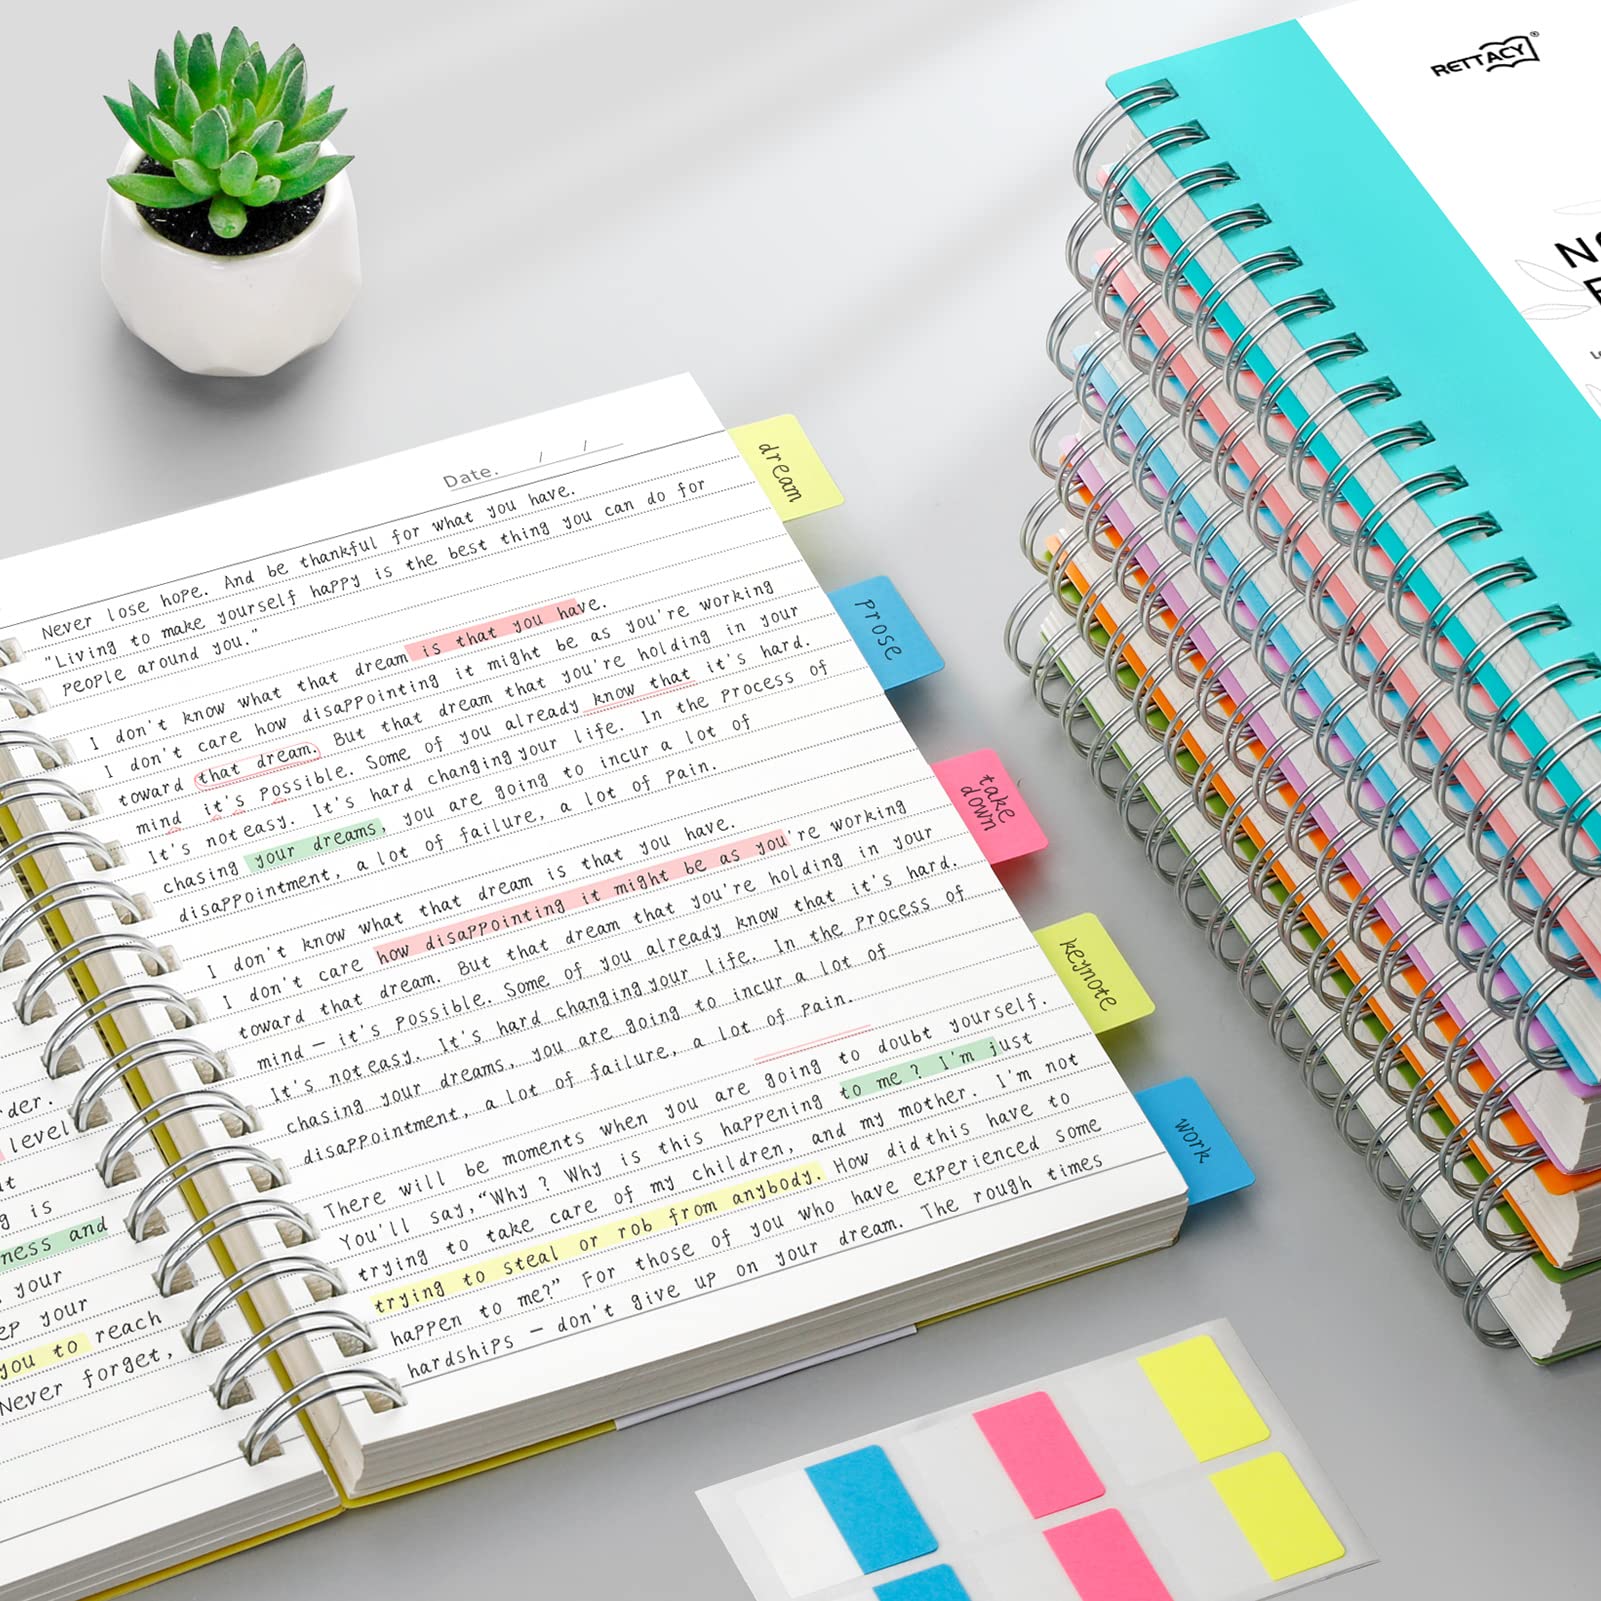 RETTACY®
Date. / /
Never lose hope. And be thankful for what you have.
"Living to make yourself happy is the best thing you can do for
people around you."
I don't know what that dream is that you have.
I don't care how disappointing it might be as you're working
toward that dream. But that dream that you're holding in your
mind it's possible. Some of you already know that it's hard.
It's not easy. It's hard changing your life. In the process of
chasing your dreams, you are going to incur a lot of
disappointment, a lot of failure, a lot of pain.
I don't know what that dream is that you have.
I don't care how disappointing it might be as you're working
toward that dream. But that dream that you're holding in your
mind – it's possible. Some of you already know that it's hard.
It's not easy. It's hard changing your life. In the process of
chasing your dreams, you are going to incur a lot of
disappointment, a lot of failure, a lot of pain.
There will be moments when you are going to doubt yourself.
You'll say, "Why? Why is this happening to me? I'm just
trying to take care of my children, and my mother. I'm not
trying to steal or rob from anybody. How did this have to
happen to me?" For those of you who have experienced some
hardships – don't give up on your dream. The rough times
dream
prose
take
down
keynote
work
rder.
level
t
g is
ness and
your
ep your
you to reach
Never forget,